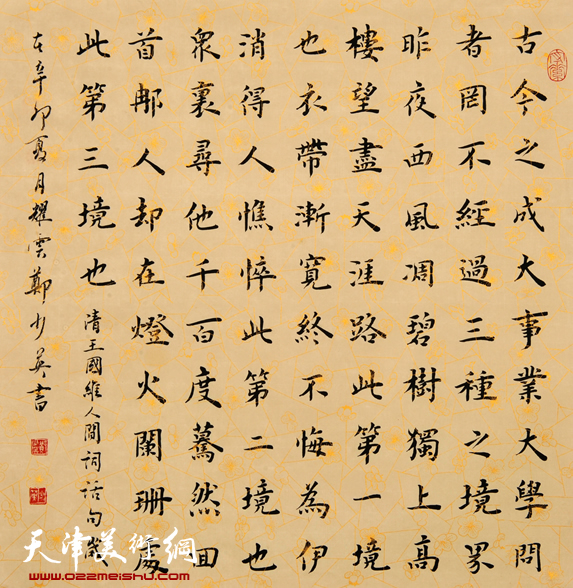 古今之成大事業大學問
者罔不經過三種之境界
昨夜西風凋碧樹獨上高
樓望盡天涯路此第一境
也衣帶漸寬終不悔為伊
消得人憔悴此第二境也
衆裏尋他千百度驀然回
首那人却在燈火闌珊處
此第三境也
清王國維人間詞話句
辛卯夏月耀雲鄭少英書
天津美術網
www.022meishu.com